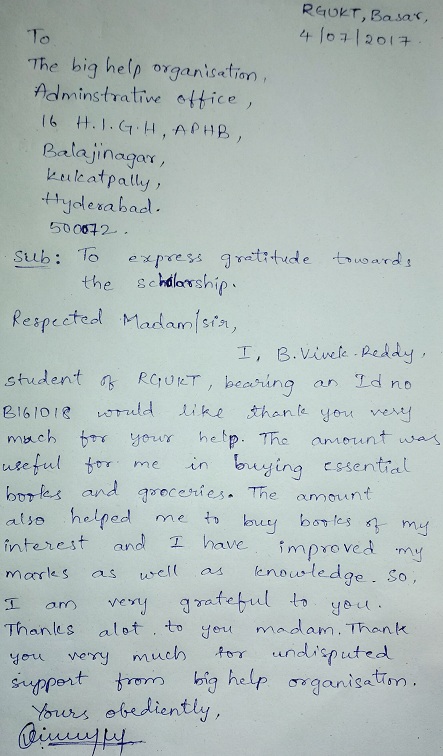 RGUKT, Basar,
4/07/2017.
To
The big help organisation,
Adminstrative office,
16 H.I.G.H, APHB,
Balajinagar,
kukatpally,
Hyderabad.
500072.
Sub: To express gratitude towards
the scholarship.
Respected Madam/sir,
I, B.Vivek Reddy,
student of RGUKT, bearing an Id no
B161018 would like thank you very
much for your help. The amount was
useful for me in buying essential
books and groceries. The amount
also helped me to buy books of my
interest and I have improved my
marks as well as knowledge. So,
I am very grateful to you.
Thanks alot to you madam. Thank
you very much for undisputed
support from big help organisation.
Yours obediently,